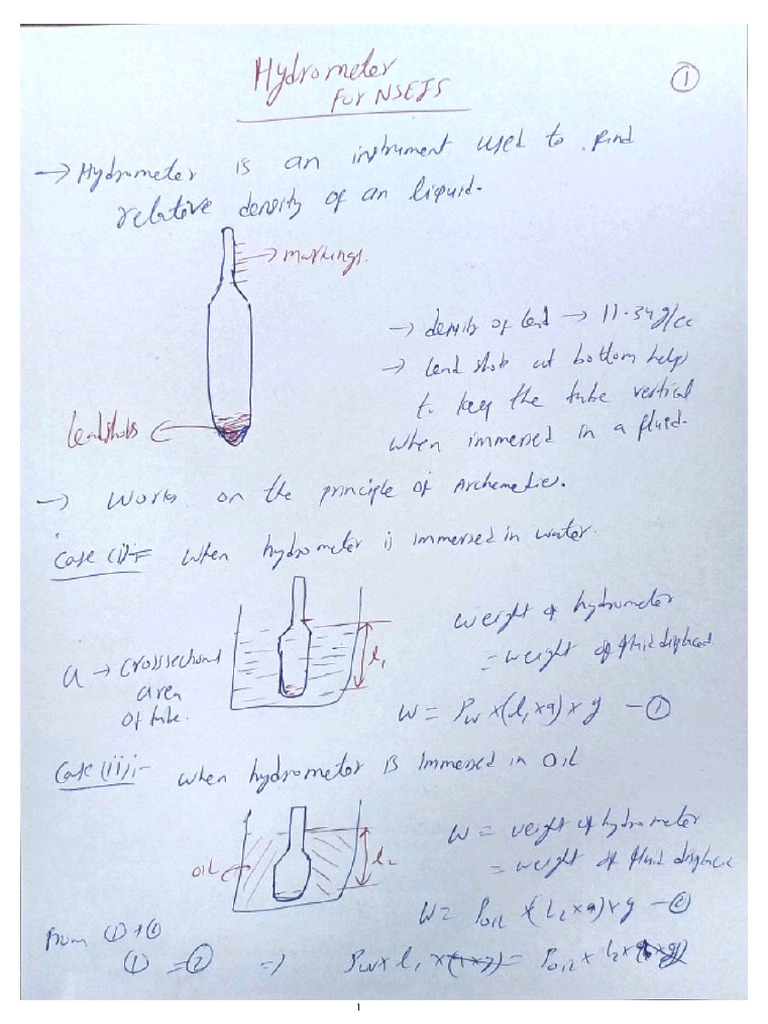 Hydrometer
For NSEJS
①
→ Hydrometer is an instrument used to find
relative density of an liquid.
→ markings.
→ density of lead → 11.34 g/cc
→ lead shots at bottom help
to keep the tube vertical
when immersed in a fluid.
leadshots ←
→ Works on the principle of Archemedies.
Case (i):- when hydrometer is immersed in water.
a → crosssectional
area
of tube.
l₁
weight of hydrometer
= weight of fluid displaced
W = ρw × (l₁ × a) × g — ①
Case (ii):- when hydrometer is immersed in oil
oil
l₂
W = weight of hydrometer
= weight of fluid displace
W = ρoil × (l₂ × a) × g — ②
From ① + ②
① = ② ⇒ ρw × l₁ × (a × g) = ρoil × l₂ × (a × g)
1